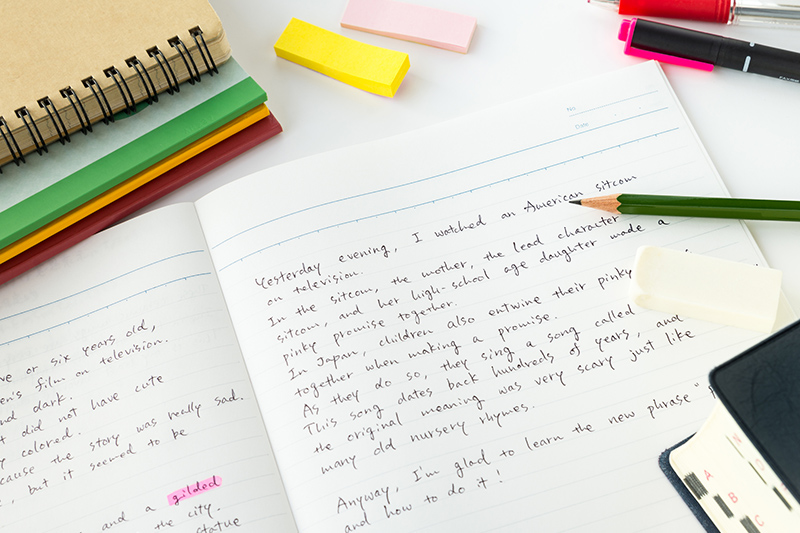 ve or six years old,
en's film on television.
nd dark.
t did not have cute
y colored.
cause the story was really sad.
, but it seemed to be
and a gilded
the city.
statue
No.
Date
Yesterday evening, I watched an American sitcom
on television.
In the sitcom, the mother, the lead character
sitcom, and her high-school age daughter made a
pinky promise together.
In Japan, children also entwine their pinky
together when making a promise.
As they do so, they sing a song called
This song dates back hundreds of years, and
the original meaning was very scary just like
many old nursery rhymes.
Anyway, I'm glad to learn the new phrase "
and how to do it!
A
B
C